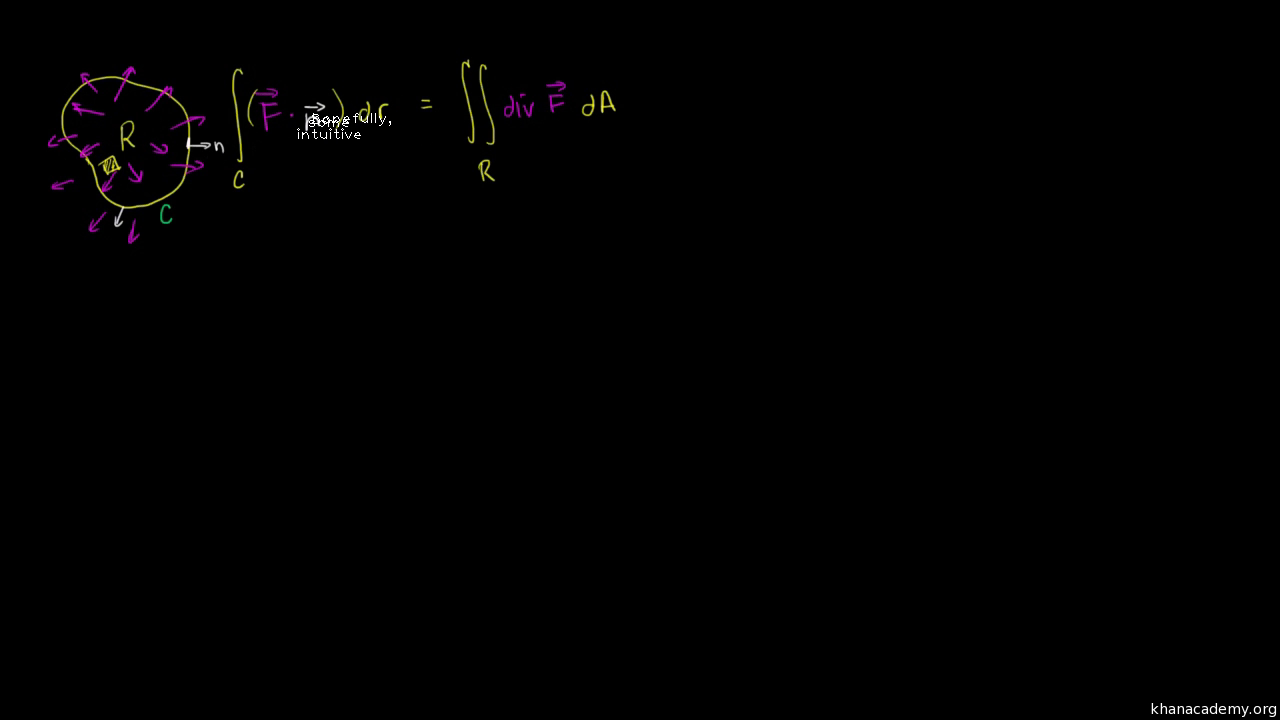 R
n
C
∫ (F⃗ · n⃗) dr = ∬ div F⃗ dA
C
R
Hopefully,
some
intuitive
khanacademy.org